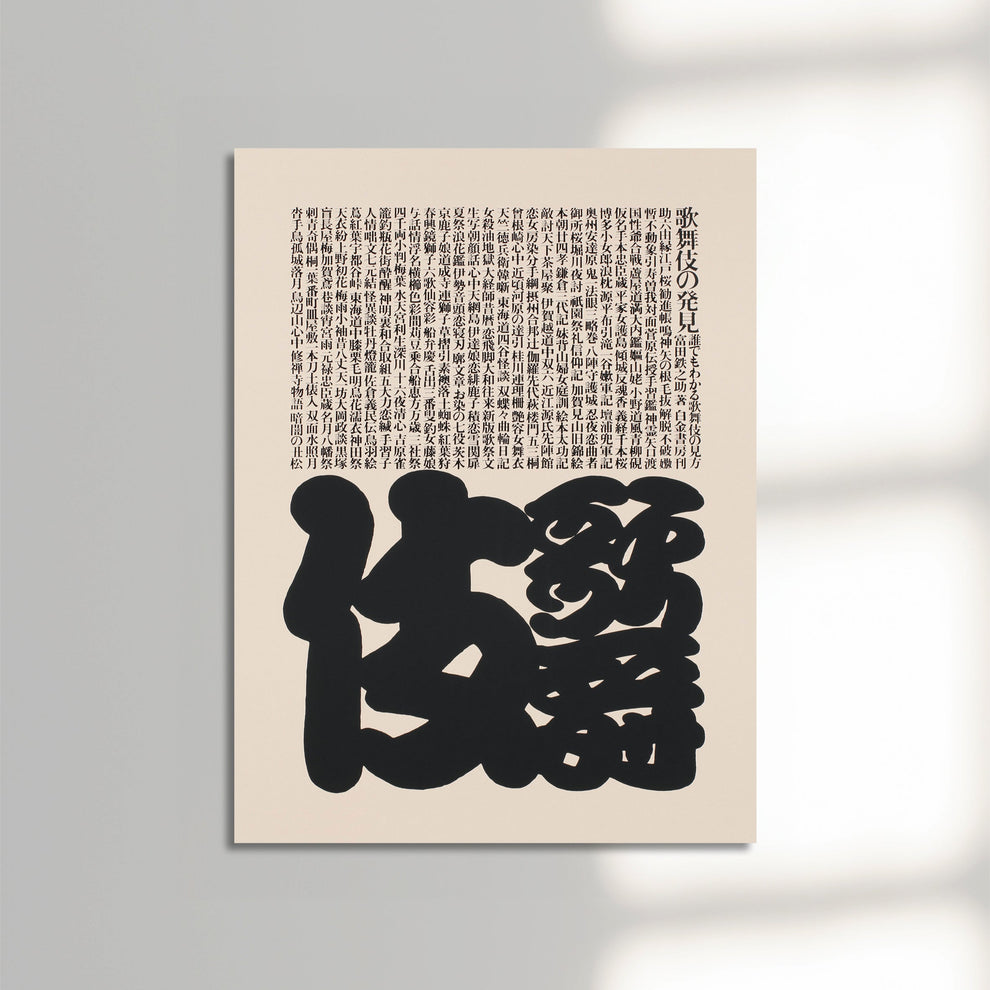 歌舞伎の発見 誰でもわかる歌舞伎の見方
富田鉄之助・著 白金書房刊
助六由縁江戸桜 勧進帳 鳴神 矢の根 毛抜 解脱 不破 嫐
暫 不動 象引 寿曽我対面 菅原伝授手習鑑 神霊矢口渡
国性爺合戦 蘆屋道満大内鑑 嫗山姥 小野道風青柳硯
仮名手本忠臣蔵 平家女護島 傾城反魂香 義経千本桜
博多小女郎浪枕 源平布引滝 一谷嫩軍記 壇浦兜軍記
奥州安達原 鬼一法眼三略巻 八陣守護城 忍夜恋曲者
御所桜堀川夜討 祇園祭礼信仰記 加賀見山旧錦絵
本朝廿四孝 鎌倉三代記 妹背山婦女庭訓 絵本太功記
敵討天下茶屋聚 伊賀越道中双六 近江源氏先陣館
恋女房染分手綱 摂州合邦辻 伽羅先代萩 楼門五三桐
曾根崎心中 近頃河原の達引 桂川連理柵 艶容女舞衣
天竺徳兵衛韓噺 東海道四谷怪談 双蝶々曲輪日記
女殺油地獄 大経師昔暦 恋飛脚大和往来 新版歌祭文
生写朝顔話 心中天網島 伊達娘恋緋鹿子 積恋雪関扉
夏祭浪花鑑 伊勢音頭恋寝刃 廓文章 お染の七役 茨木
京鹿子娘道成寺 連獅子 草摺引 素襖落 土蜘 紅葉狩
春興鏡獅子 六歌仙容彩 船弁慶 舌出三番叟 釣女 藤娘
与話情浮名横櫛 色彩間苅豆 乗合船恵方万歳 三社祭
四千両小判梅葉 水天宮利生深川 十六夜清心 吉原雀
籠釣瓶花街酔醒 神明恵和合取組 五大力恋緘 手習子
人情噺文七元結 怪異談牡丹燈籠 佐倉義民伝 鳥羽絵
蔦紅葉宇都谷峠 東海道中膝栗毛 明烏花濡衣 神田祭
天衣紛上野初花 梅雨小袖昔八丈 天一坊大岡政談 黒塚
盲長屋梅加賀鳶 巷談宵宮雨 元禄忠臣蔵 名月八幡祭
刺青奇偶 桐一葉 番町皿屋敷 一本刀土俵入 双面水照月
沓手鳥孤城落月 鳥辺山心中 修禅寺物語 暗闇の丑松
歌舞伎